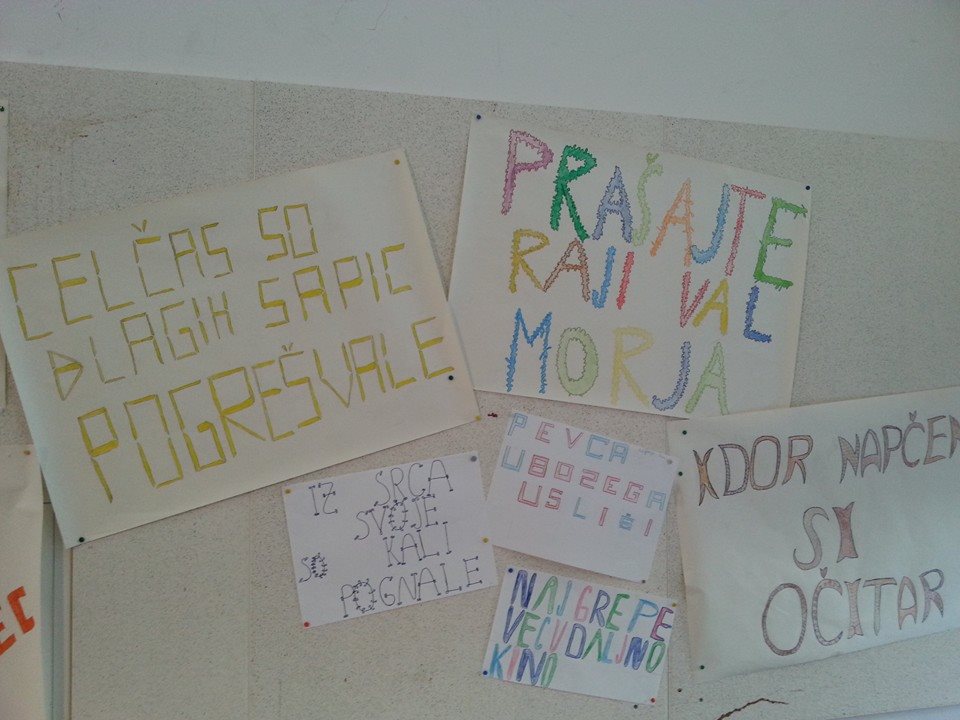 CELČAS SO
BLAGIH SAPIC
POGREŠVALE
PRAŠAJTE
RAJI VAL
MORJA
IZ SRCA
SVOJE
KALI
SO
POGNALE
PEVCA
UBOZEGA
USLIŠI
NAJ GRE PE
VEC V DALJNO
KINO
KDOR NAPČEN
SI
OČITAR
EC